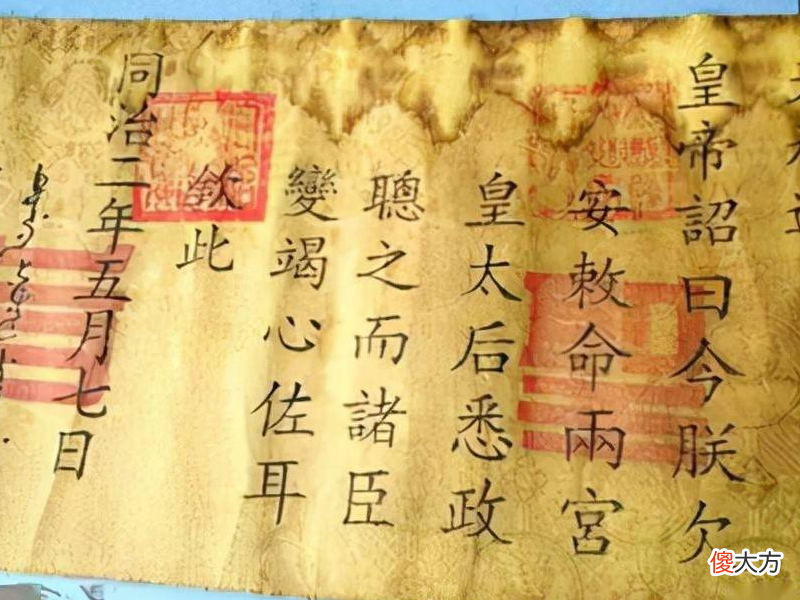 皇帝詔曰今朕欠
安敕命兩宮
皇太后悉政
聰之而諸臣
變竭心佐耳
欽此
同治二年五月七日
傻大方